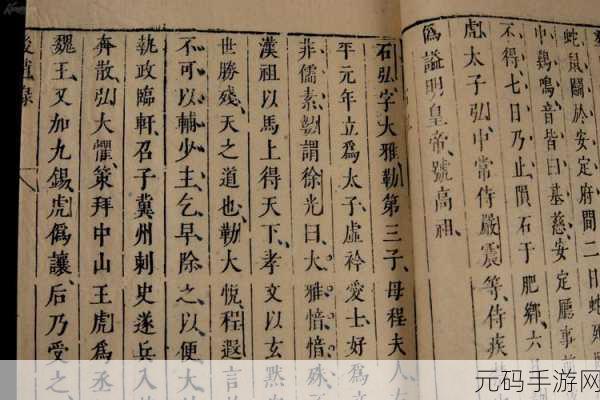 蛇鼠鬭於安定府間二日蛇死
中鷄鳴、音皆曰基慈、安定廳事
不得、七日乃止、隕石于肥鄉、六
虎、太子弘、中常侍嚴震等、侍疾
爲謚明皇帝、號高祖、
石弘、字大雅、勒第三子、母程夫人、
平元年立爲太子、虛衿愛士、好爲
非儒素、勒謂徐光曰、大雅愔愔、殊
漢祖以馬上得天下、孝文以玄
世勝殘、天之道也、勒大悅、程遐言
不可以輔少主、乞早除之、以便大
執政臨軒、召子冀州刺史邃兵入
奔散、弘大懼、策拜中山王虎爲丞
魏王、又加九錫、虎僞讓、后乃受之、
後趙錄
元码手游网